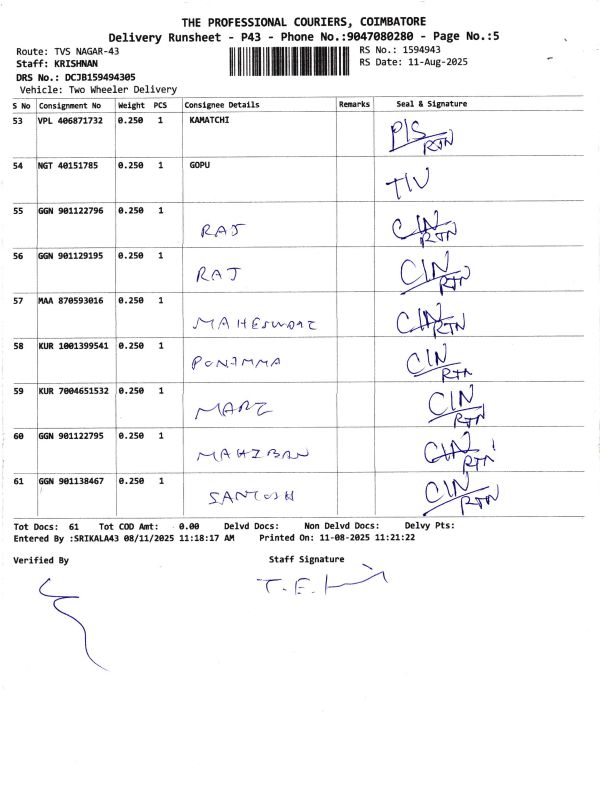 THE PROFESSIONAL COURIERS, COIMBATORE
Delivery Runsheet - P43 - Phone No.:9047080280 - Page No.:5
Route: TVS NAGAR-43 RS No.: 1594943
Staff: KRISHNAN RS Date: 11-Aug-2025
DRS No.: DCJB159494305
Vehicle: Two Wheeler Delivery
S No Consignment No Weight PCS Consignee Details Remarks Seal & Signature
53 VPL 406871732 0.250 1 KAMATCHI P/S RTN
54 NGT 40151785 0.250 1 GOPU
55 GGN 901122796 0.250 1 RAJ C/N RTN
56 GGN 901129195 0.250 1 RAJ C/N RTN
57 MAA 870593016 0.250 1 C/N RTN
58 KUR 1001399541 0.250 1 C/N RTN
59 KUR 7004651532 0.250 1 C/N RTN
60 GGN 901122795 0.250 1 C/N RTN
61 GGN 901138467 0.250 1 SANTOSH C/N RTN
Tot Docs: 61 Tot COD Amt: 0.00 Delvd Docs: Non Delvd Docs: Delvy Pts:
Entered By :SRIKALA43 08/11/2025 11:18:17 AM Printed On: 11-08-2025 11:21:22
Verified By Staff Signature